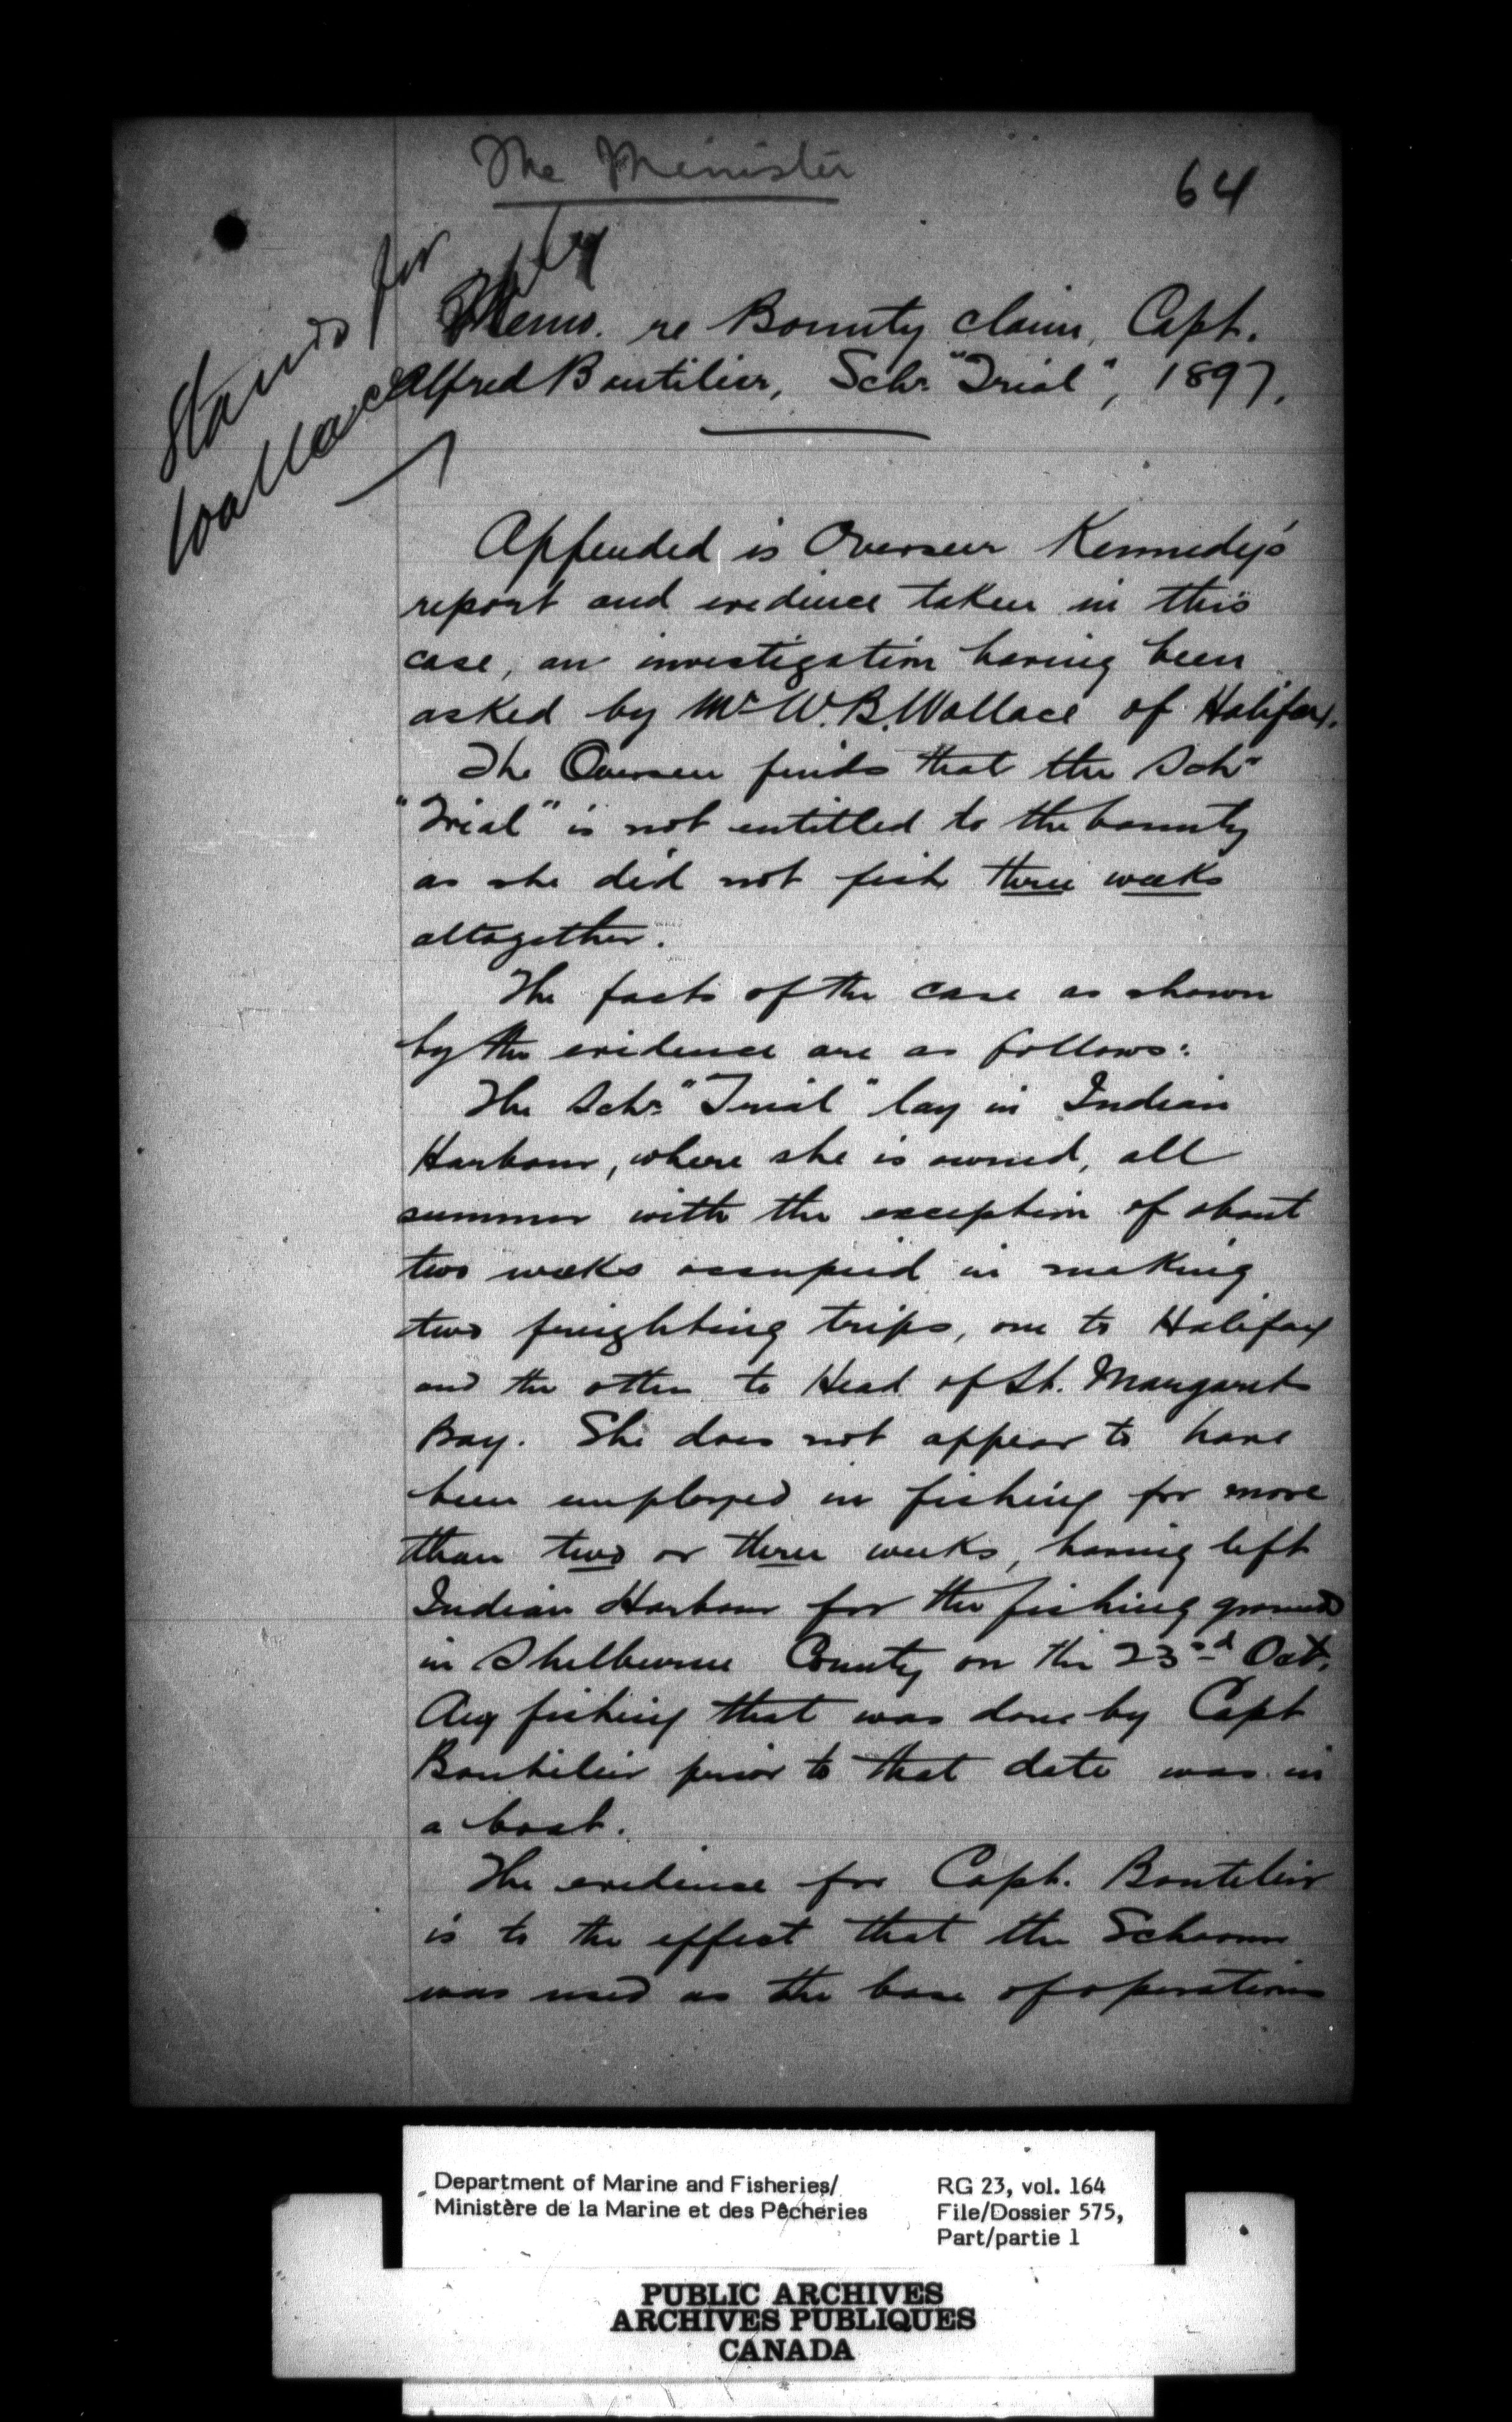 The Minister
64
Stands for reply
Wallace
Memo. re Bounty claim, Capt.
Alfred Boutilier, Schr. "Trial", 1897.
Appended is Overseer Kennedy's
report and evidence taken in this
case, an investigation having been
asked by Mr W. B. Wallace of Halifax.
The Overseer finds that the Schr
"Trial" is not entitled to the bounty
as she did not fish three weeks
altogether.
The facts of the case as shown
by the evidence are as follows:
The Schr. "Trial" lay in Indian
Harbour, where she is owned, all
summer with the exception of about
two weeks occupied in making
two freighting trips, one to Halifax
and the other to Head of St. Margarets
Bay. She does not appear to have
been employed in fishing for more
than two or three weeks, having left
Indian Harbour for the fishing grounds
in Shelburne County on the 23rd Oct.
Any fishing that was done by Capt
Boutilier prior to that date was in
a boat.
The evidence for Capt. Boutilier
is to the effect that the Schooner
was used as the base of operations
Department of Marine and Fisheries/
Ministère de la Marine et des Pêcheries
RG 23, vol. 164
File/Dossier 575,
Part/partie 1
PUBLIC ARCHIVES
ARCHIVES PUBLIQUES
CANADA